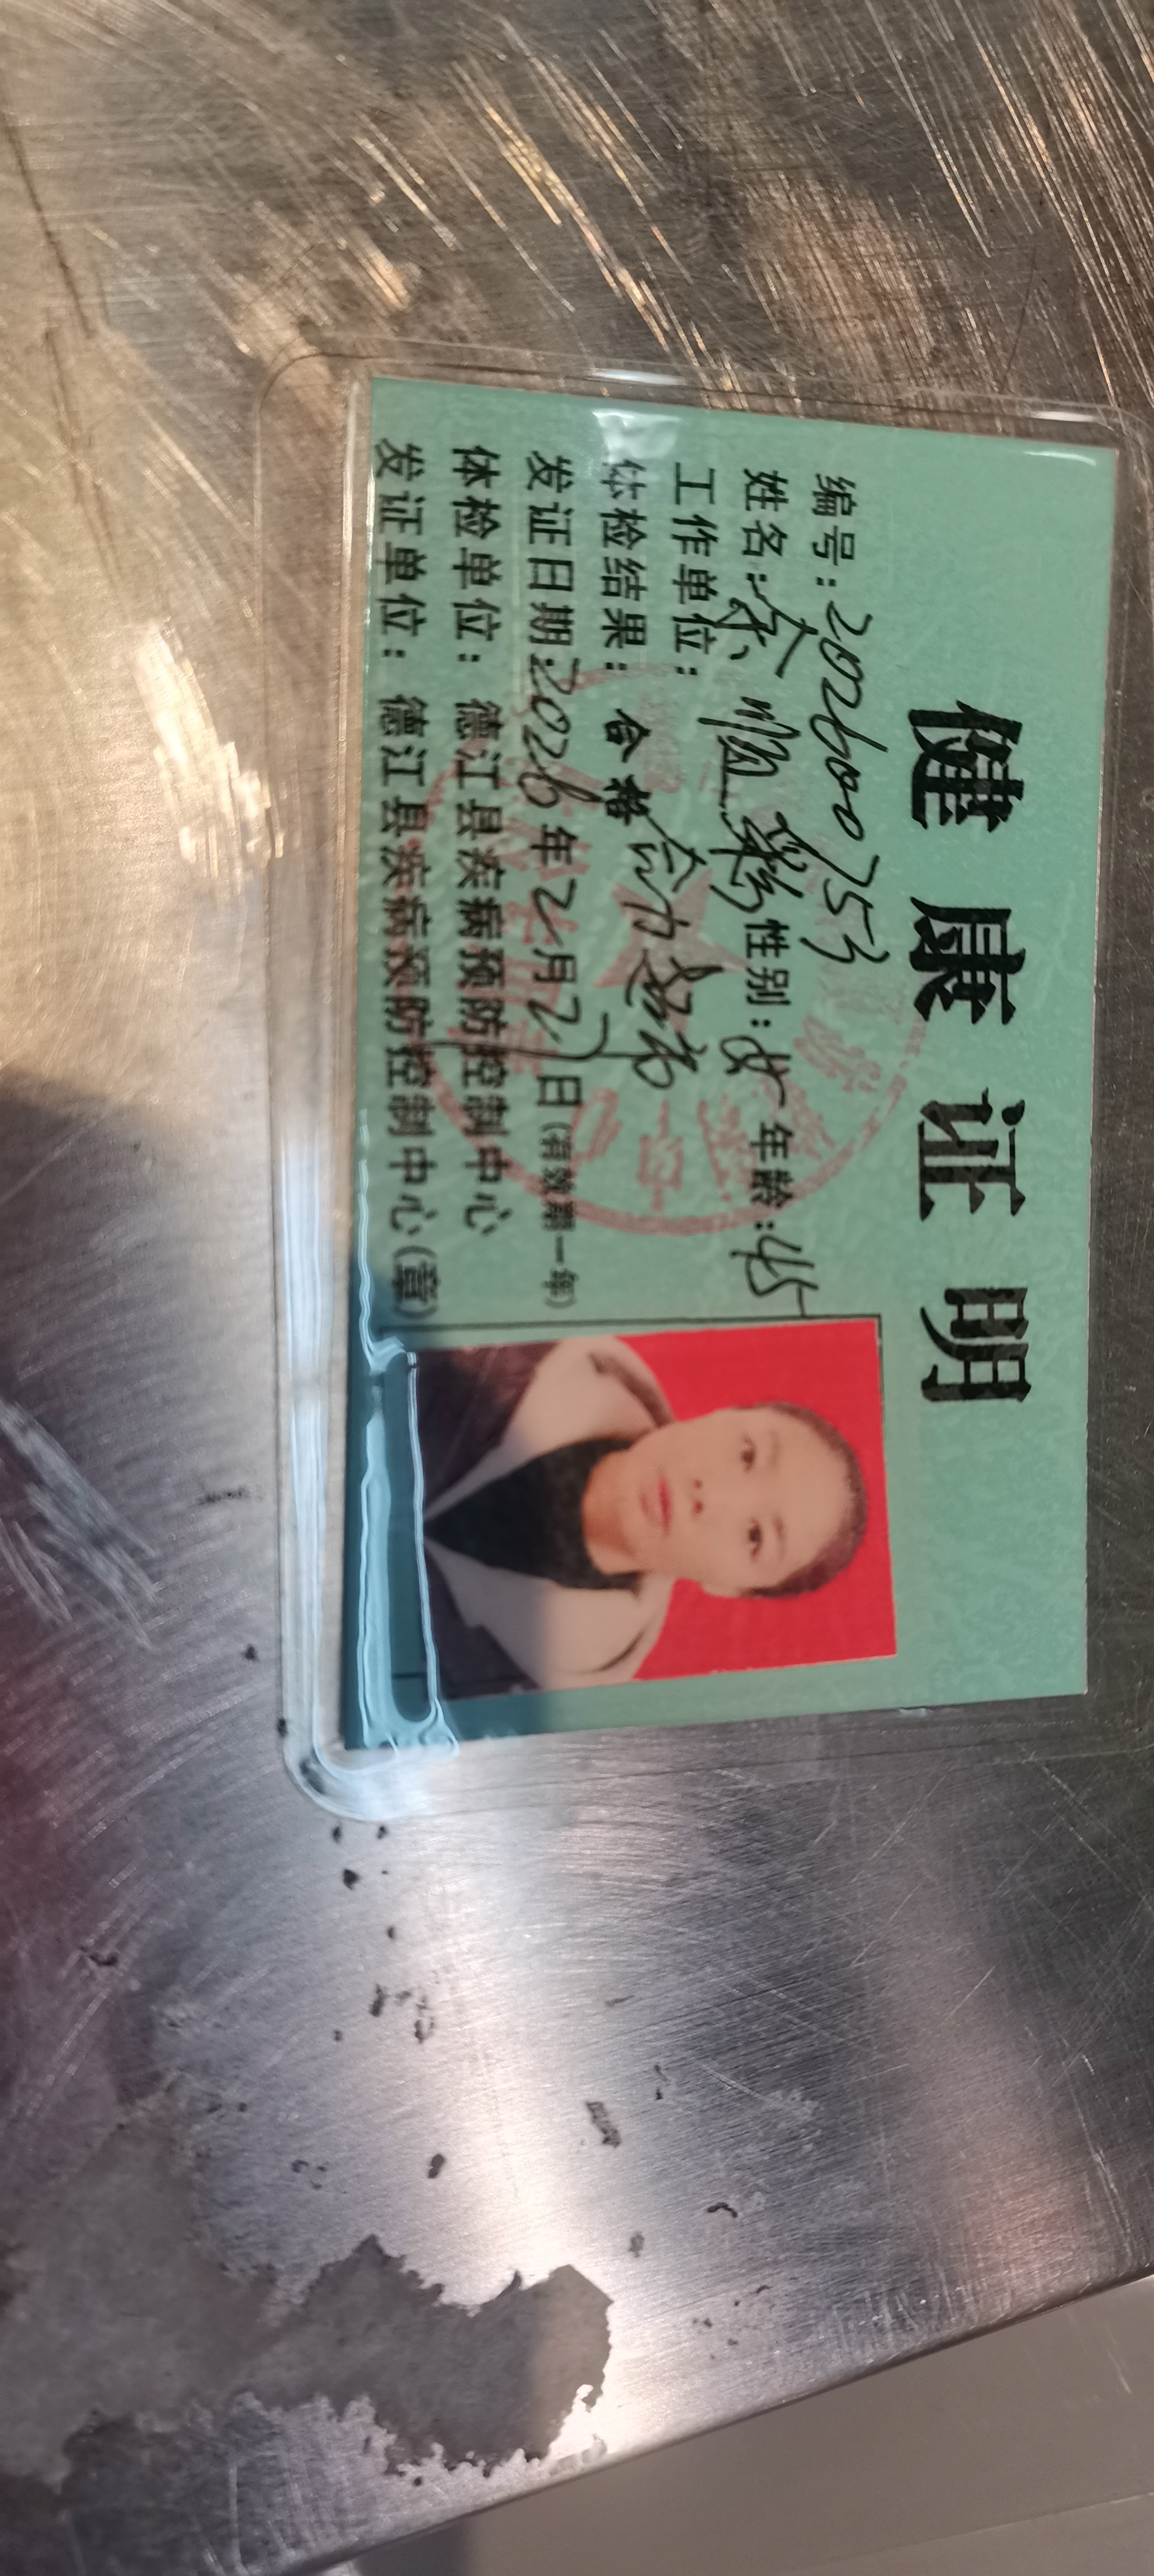 健康证明
编号：202600753
姓名：余顺彩 性别：女 年龄：45
工作单位：
体检结果：合格
发证日期：2026年2月27日（有效期一年）
体检单位：德江县疾病预防控制中心
发证单位：德江县疾病预防控制中心（章）